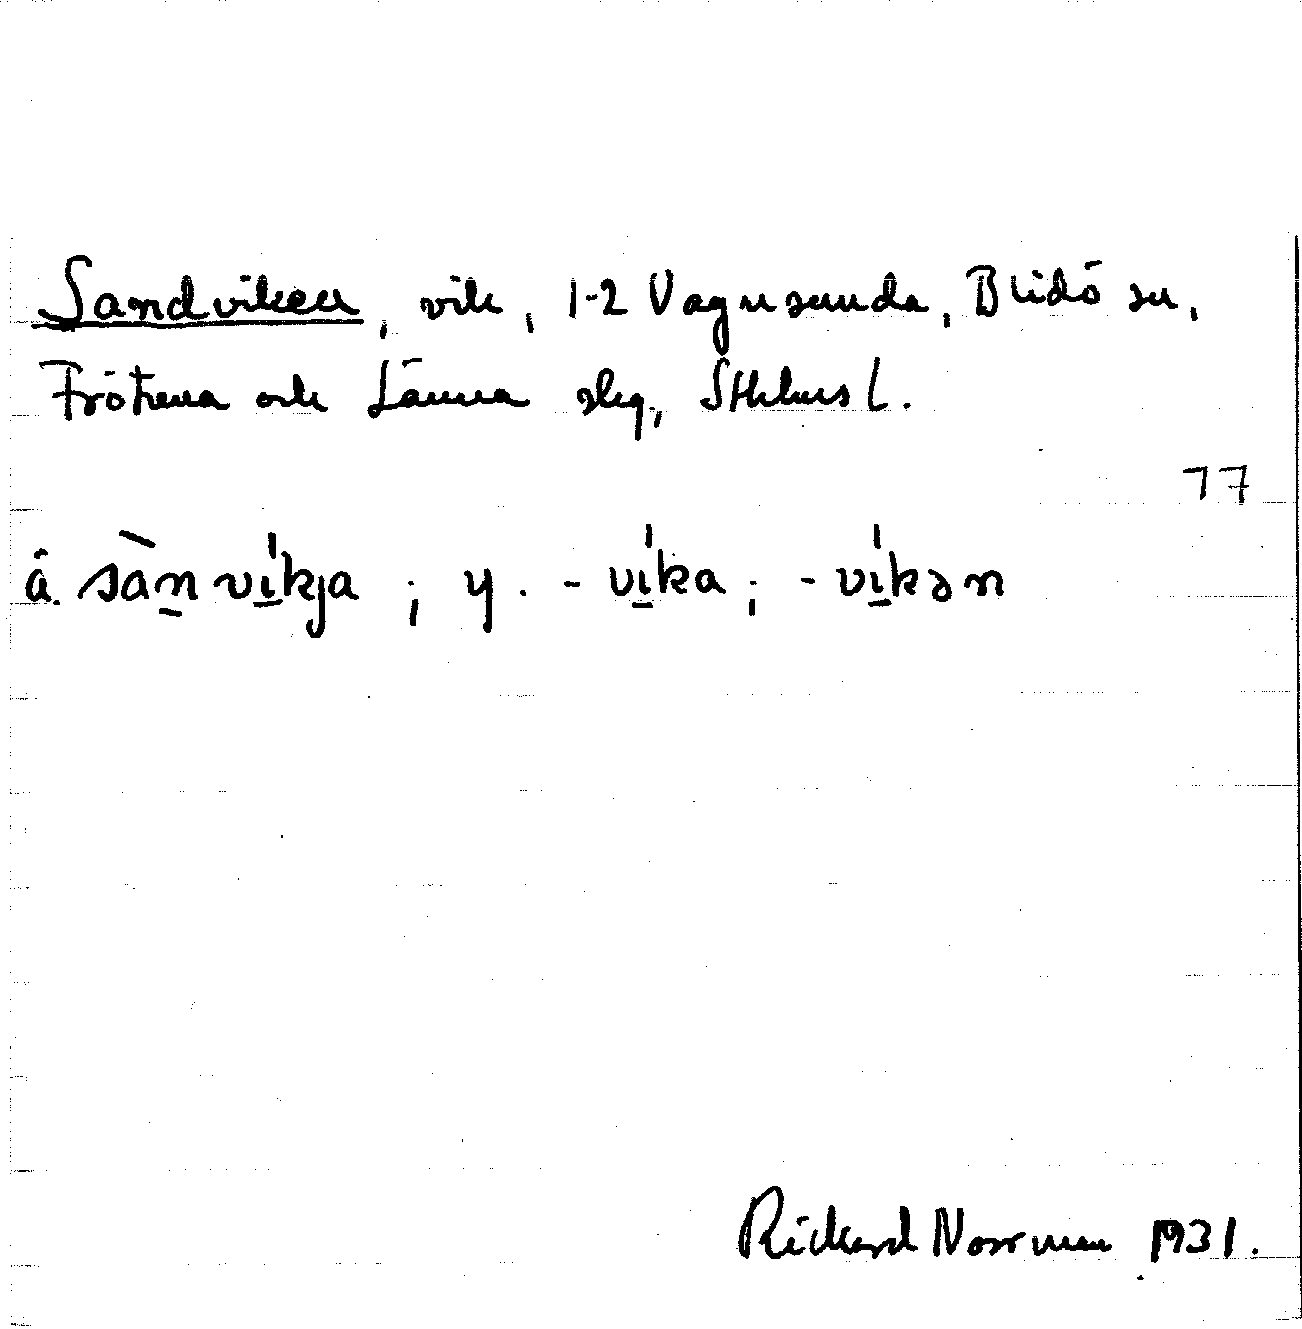 Sandviken, vik, 1-2 Vagnsunda, Blidö sn,
Frötuna och Länna skg, Sthlms l.
77
å. sàn̠ví̠kja ; y. -ví̠ka ; -ví̠kən
Rickard Norrman 1931.